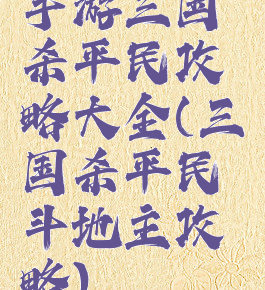 手游三国
杀平民攻
略大全(三
国杀平民
斗地主攻
略)